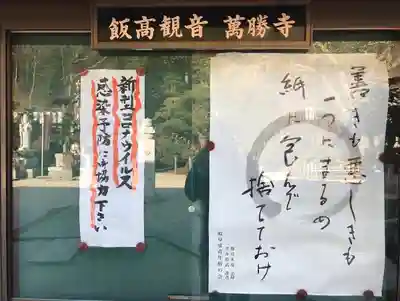 飯高観音 萬勝寺
善きも悪しきも
一つにまるめ
紙に包んで
捨てておけ
新型コロナウイルス
感染予防にご協力下さい